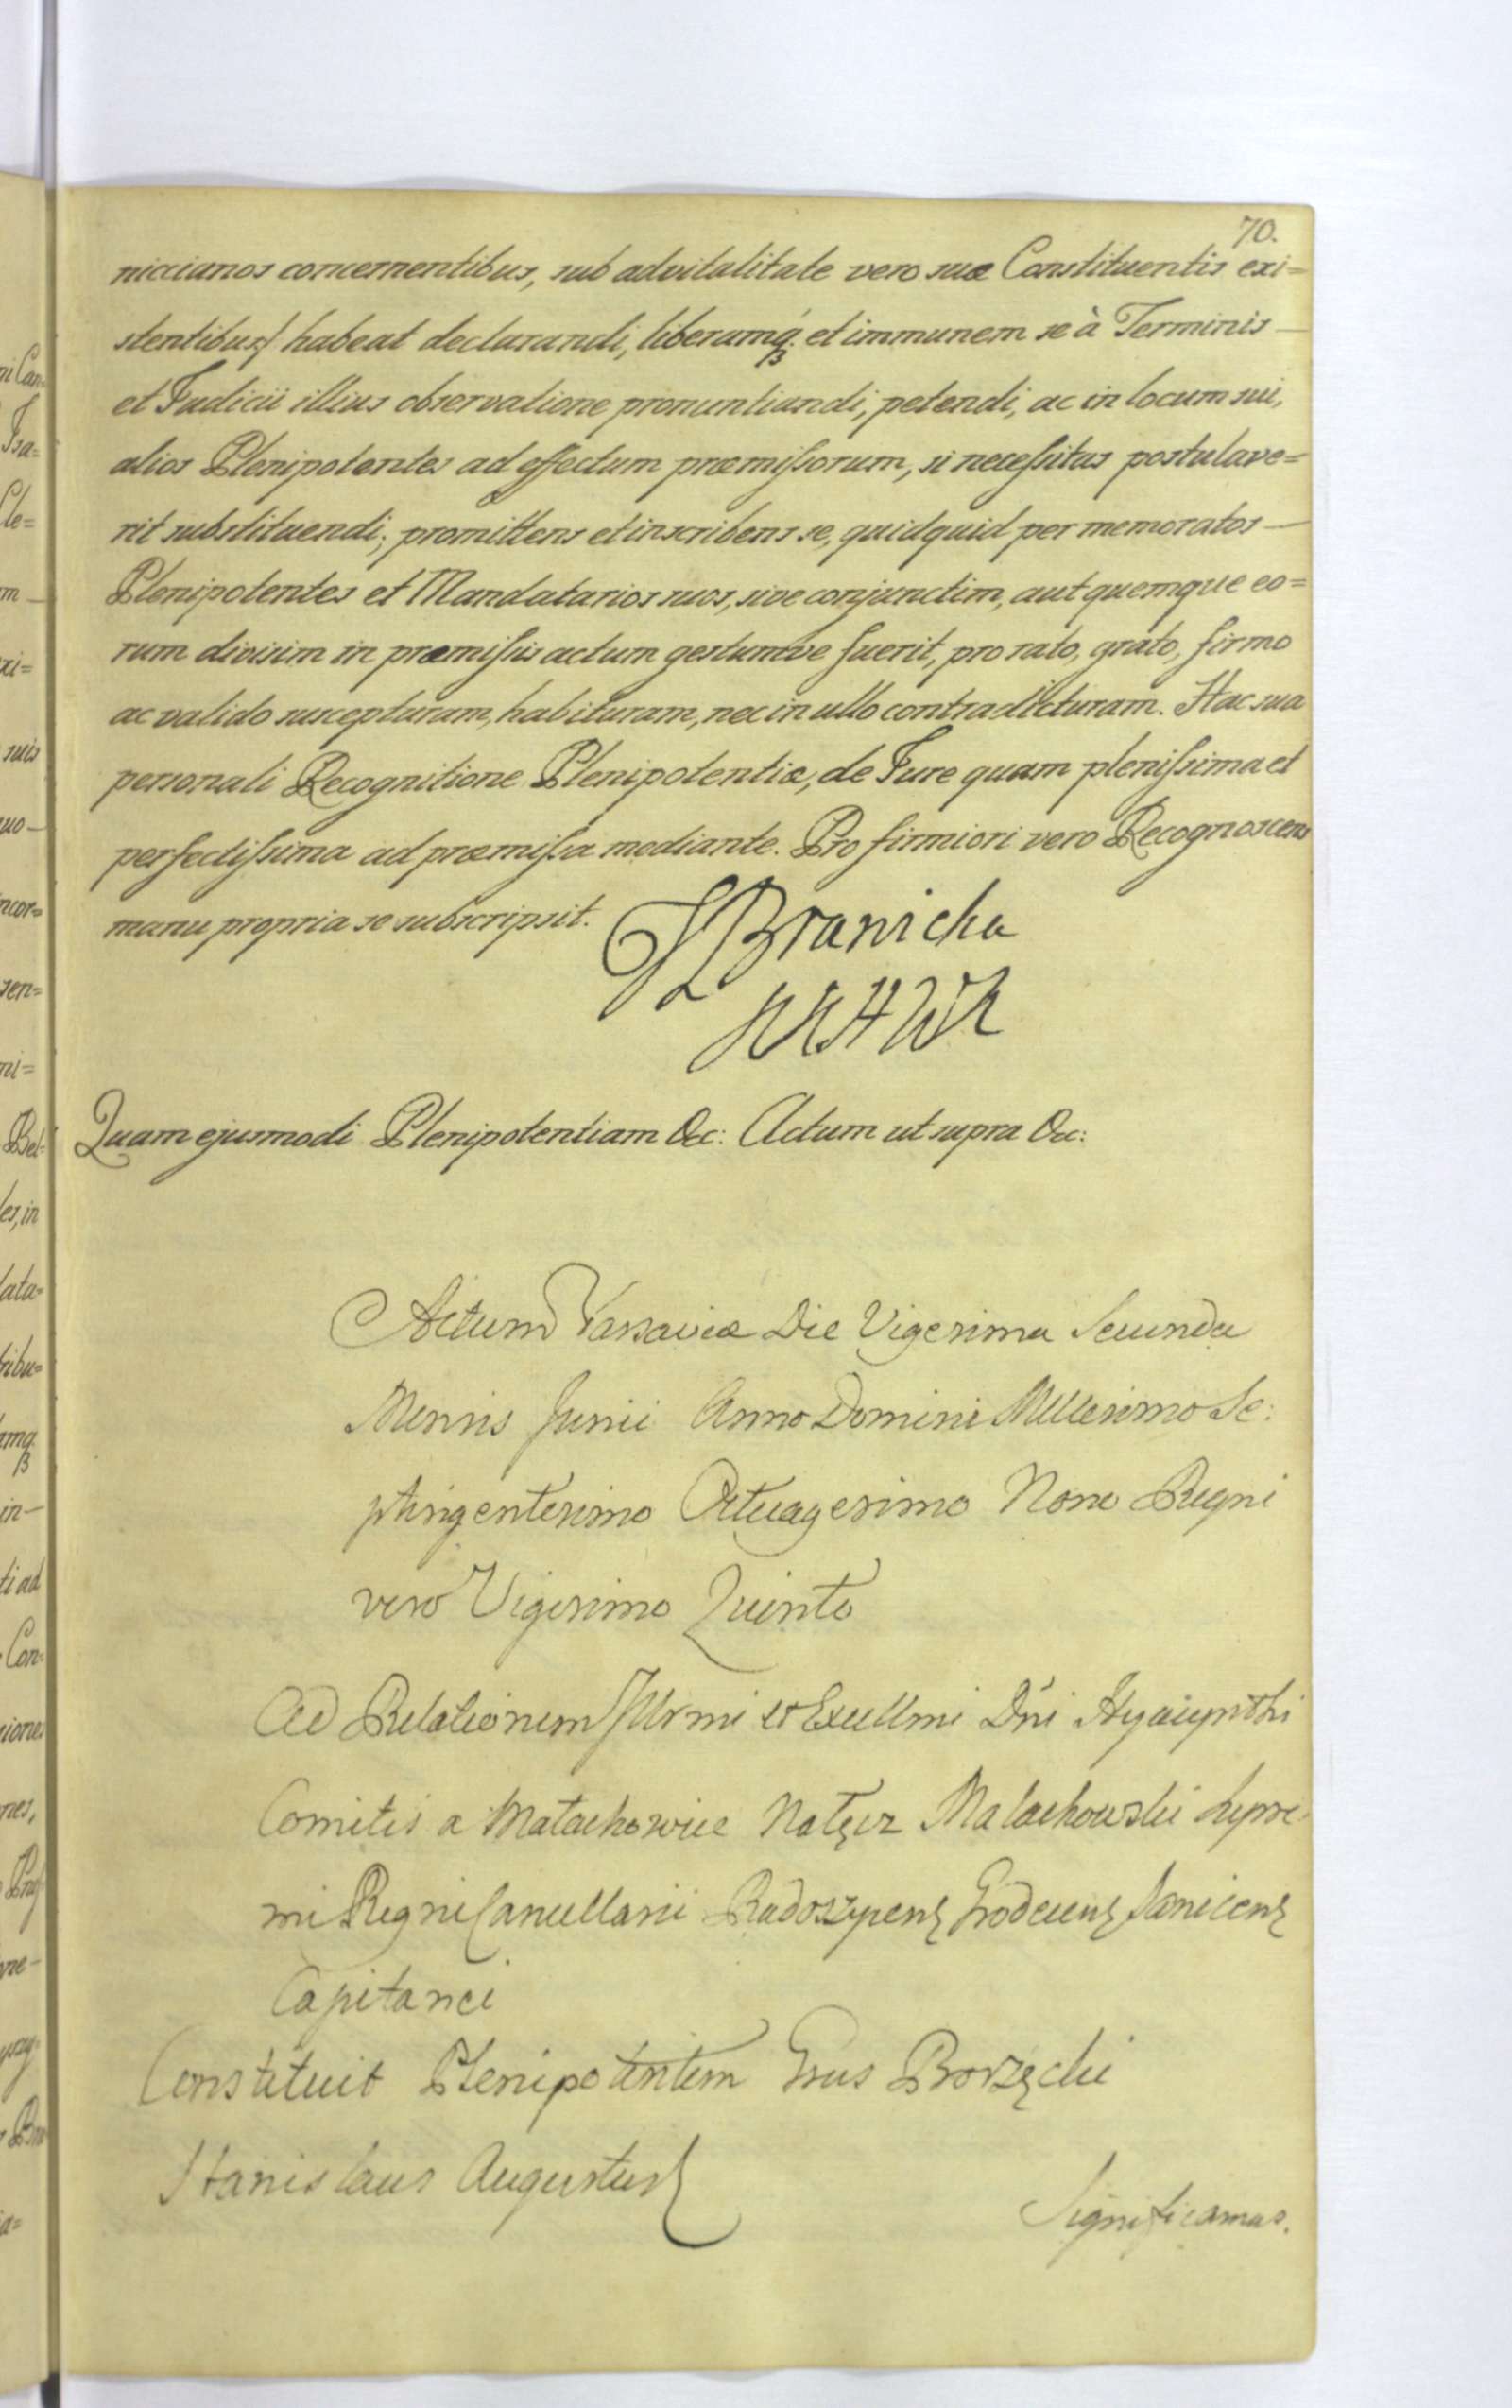 70.
nicianos concernentibus, sub advitalitate vero suæ Constituentis exi=
stentibus/ habeat declarandi, liberamq; et immunem se à Terminis —
et Judicii illius observatione pronuntiandi, petendi, ac in locum sui,
alios Plenipotentes ad effectum præmissorum, si necessitas postulave=
rit substituendi; promittens et inscribens se, quidquid per memoratos —
Plenipotentes et Mandatarios suos, sive conjunctim, aut quemque eo=
rum divisim in præmissis actum gestumve fuerit, pro rato, grato, firmo
ac valido suscepturam, habituram, nec in ullo contradicturam. Hac sua
personali Recognitione Plenipotentiæ, de Jure quam plenissima et
perfectissima ad præmissa mediante. Pro firmiori vero Recognoscens
manu propria se subscripsit.
Branicka
Quam ejusmodi Plenipotentiam &c: Actum ut supra &c:
Actum Varsaviæ Die Vigesima Secunda
Mensis Junii Anno Domini Millesimo Se:
ptingentesimo Octuagesimo Nono Regni
vero Vigesimo Quinto
Ad Relationem Illrmi et Excllmi Dni Hyacynthi
Comitis a Małachowice Nałęcz Małachowski Supre:
mi Regni Cancellarii Radoszycen Grodecens Sanicens
Capitanei
Constituit Plenipotentem Grus Borzęcki
Stanislaus Augustus
Significamus.